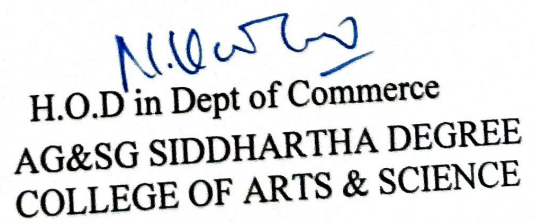 H.O.D in Dept of Commerce
AG&SG SIDDHARTHA DEGREE
COLLEGE OF ARTS & SCIENCE